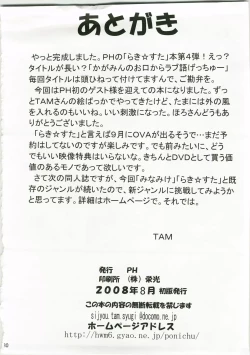 あとがき
やっと完成しました。PHの「らき☆すた」本第４弾！えっ？
タイトルが長い？「かがみんのお口からラブ語げっちゅー」
毎回タイトルは頭ひねって付けてますんで、ご勘弁を。
今回はPH初のゲスト様を迎えての本になりました。ずっ
とTAMさんの絵ばっかでやってきたけど、たまには外の風
を入れるのもいいね。いい刺激になった。ほろさんどうもあ
りがとうございました。
「らき☆すた」と言えば９月にOVAが出るそうで…まだ予
約はしてないのですが楽しみです。でも前みたいに、どう
でもいい映像特典はいらないな。きちんとDVDとして買う価
値のあるモノであって欲しいです。
さて次の同人誌ですが、今回「みなみけ」「らき☆すた」と既
存のジャンルが続いたので、新ジャンルに挑戦してみようか
と思ってます。詳細はホームページで。それでは。
TAM
発行　PH
印刷所　（株）栄光
２００８年８月　初版発行
この本の内容の無断転載を禁じます
sijyou.tam.syugi@docomo.ne.jp
ホームページアドレス
http://hwm6.gyao.ne.jp/ponichu/